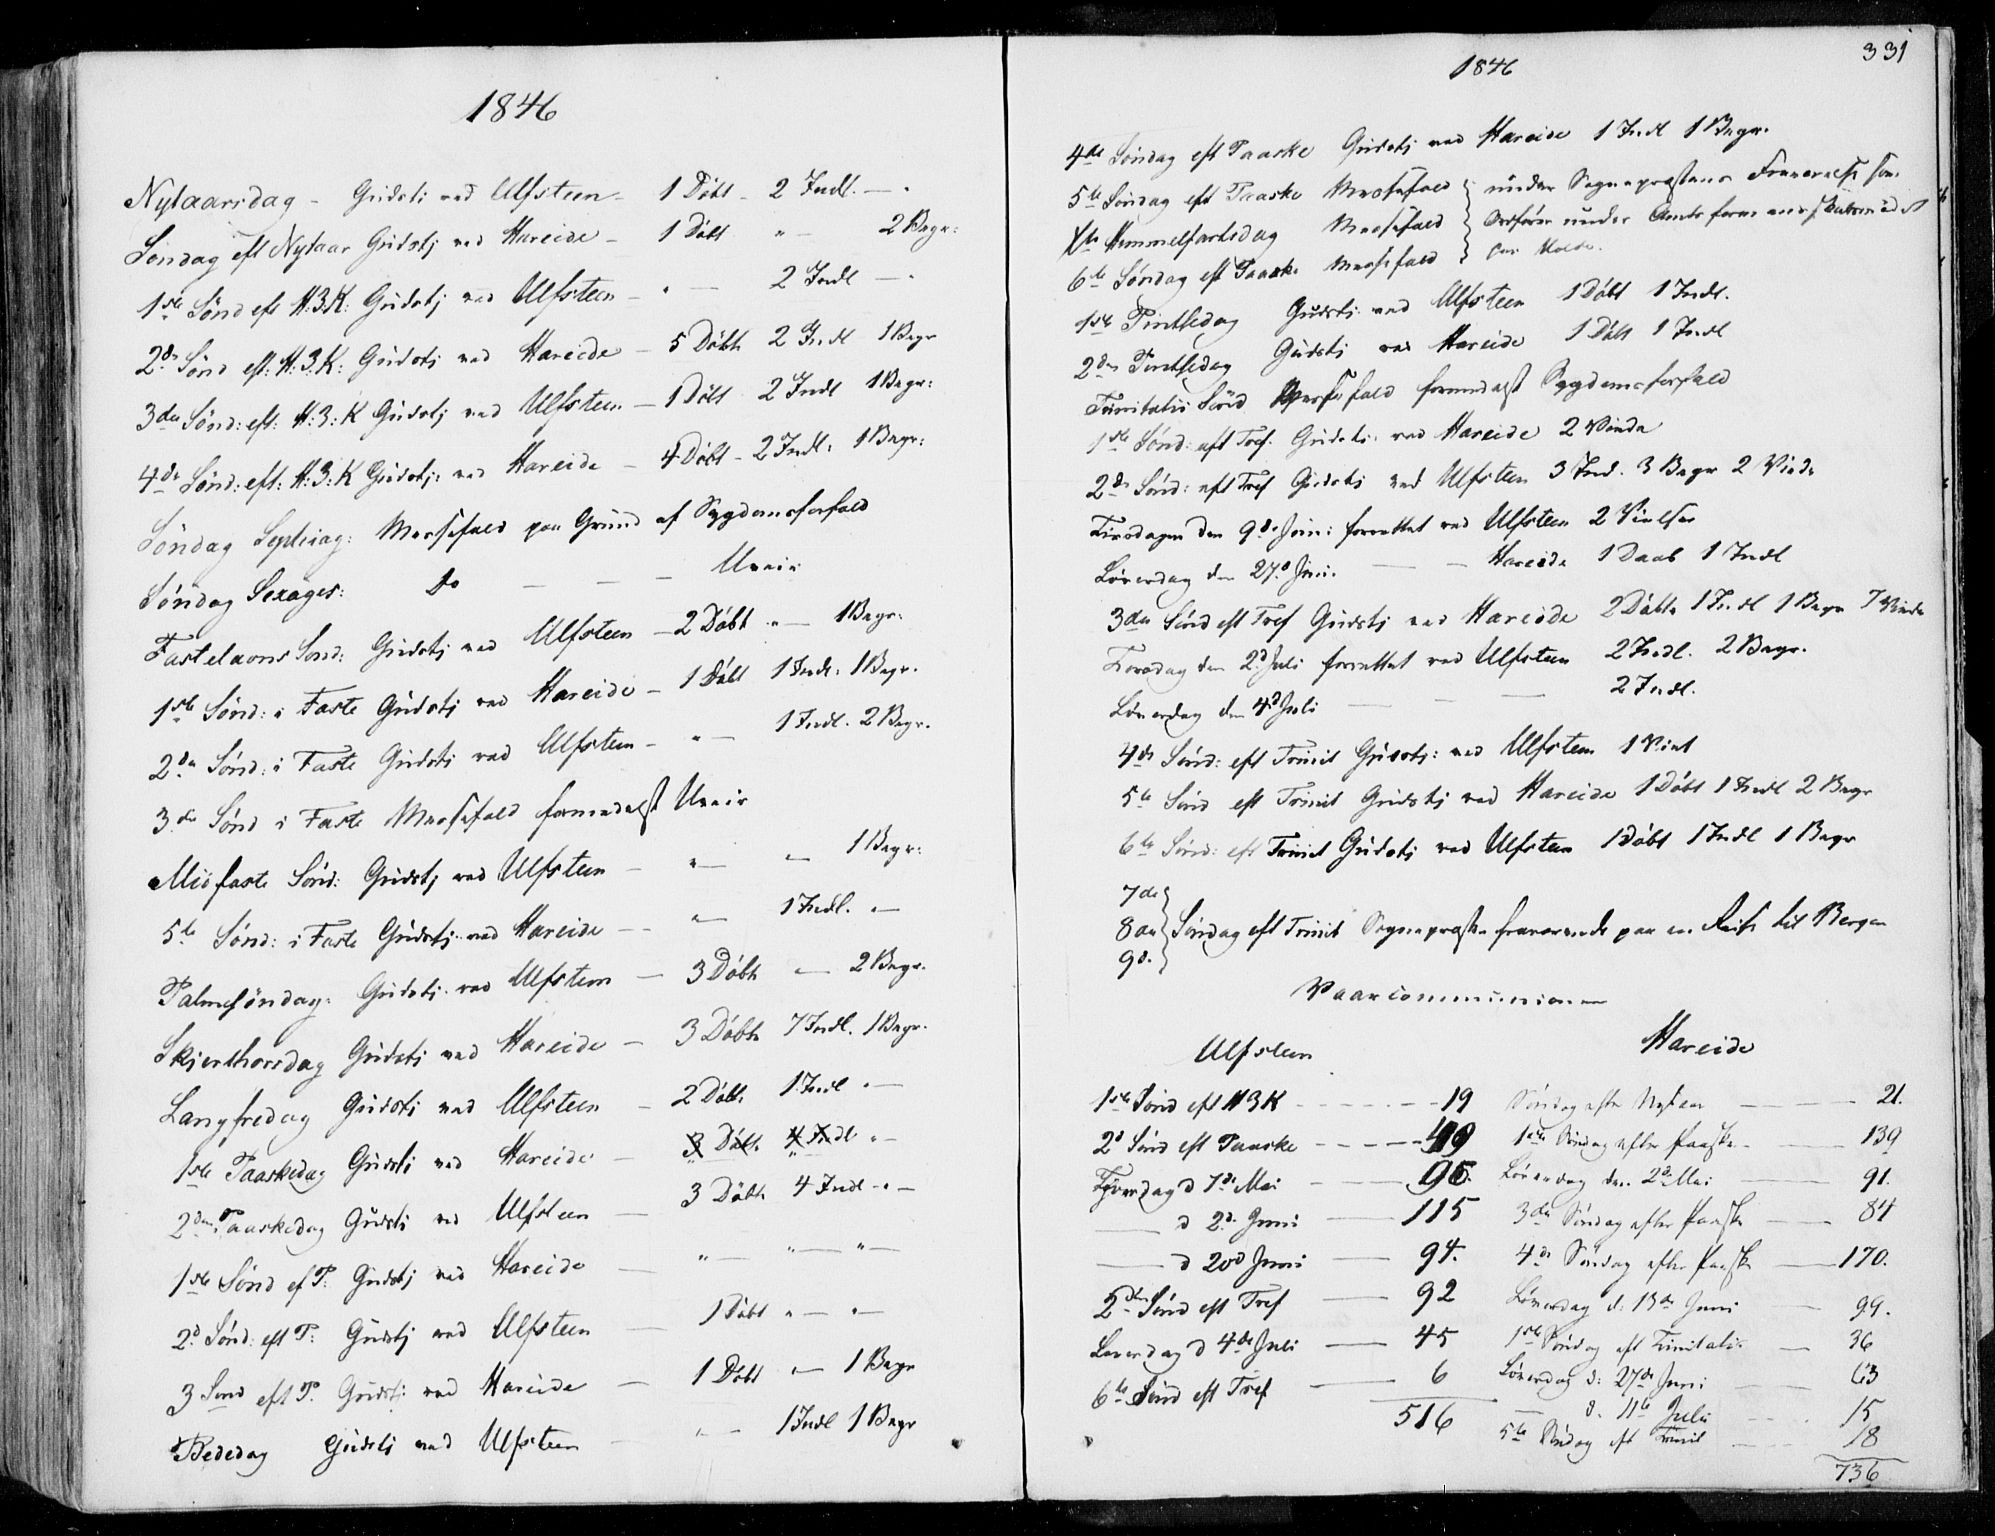 1846
Nytaarsdag - Gudstj ved Ulfsteen - 1 Döbt - 2 Indl. — "
Söndag eft Nytaar Gudstj ved Hareide - 1 Döbt " — 2 Begr:
1ste Sönd eft H.3.K: Gudstj ved Ulfsteen - " — 2 Indl — "
2de Sönd eft: H.3.K: Gudstj ved Hareide - 5 Döbte 2 Indl 1 Begr
3die Sönd: eft: H:3:K Gudstj ved Ulfsteen - 1 Döbt 2 Indl 1 Begr:
4de Sönd: eft: H:3:K Gudstj: ved Hareide - 4 Döbt - 2 Indl: 1 Begr:
Söndag Septuag: Messefald paa Grund af Sygdomsforfald
Söndag Sexages: do — — — Uveir
Fastelavns Sönd: Gudstj ved Ulfsteen - 2 Döbt " — 1 Begr:
1ste Sönd: i Faste Gudstj ved Hareide - 1 Döbt 1 Indl: 1 Begr.
2den Sönd: i Faste Gudstj ved Ulfsteen - " — 1 Indl. 2 Begr.
3die Sönd i Faste Messefald formedelst Uveir
Midfaste Sönd: Gudstj ved Ulfsteen - " — " — 1 Begr:
5te Sönd: i Faste Gudstj ved Hareide - " — 1 Indl. " —
Palmesöndag: Gudstj ved Ulfsteen — 3 Döbte " — 2 Begr.
Skjerthorsdag Gudstj ved Hareide — 3 Döbte 7 Indl. 1 Begr.
Langfredag Gudstj ved Ulfsteen - 2 Döbte 1 Indl " —
1ste Paaskedag Gudstj ved Hareide - 3 Döbte 4 Indl " —
2den Paaskedag Gudstj ved Ulfsteen — 3 Döbte 4 Indl - " —
1ste Sönd ef P: Gudstj ved Hareide — " — " — " —
2d Sönd: eft P: Gudstj ved Ulfsteen — 1 Döbt " — " —
3 Sönd eft P. Gudstj: ved Hareide — 1 Döbt " — 1 Begr
Bededag Gudstj ved Ulfsteen — " — 1 Indl 1 Begr
331
1846
4de Söndag eft Paaske Gudstj ved Hareide 1 Indl 1 Begr.
5te Söndag eft Paaske Messefald } under Sognepræstens Fraværelse som
Hemmelfartsdag Messefald } Ordförer under Amtsformandskabsmödet
6te Söndag eft Paaske Messefald } paa Molde.
1ste Pintsedag Gudstj. ved Ulfsteen 1 Döbt 1 Indl.
2den Pintsedag Gudstj ved Hareide 1 Döbt 1 Indl
Trinitatis Sönd Messefald formedelst Sygdomsforfald
1ste Sönd: eft Tref. Gudstj: ved Hareide 2 Viede
2de Sönd: eft Tref Gudstj ved Ulfsteen 3 Ind. 3 Begr 2 Viede
Tirsdagen den 9de Juni forrettet ved Ulfsteen 2 Vielser
Löverdag den 27d Juni. — — Hareide 1 Daab 1 Indl
3die Sönd eft Tref Gudstj ved Hareide 2 Döbte 1 Indl 1 Begr 7 Viede
Torsdag den 2d Juli forrettet ved Ulfsteen 2 Indl. 2 Begr.
Löverdag den 4d Juli — — — 2 Indl.
4de Sönd: eft Trinit Gudstj: ved Ulfsteen 1 Viet
5te Sönd eft Trinit Gudstj ved Hareide 1 Döbt 1 Indl 2 Begr
6te Sönd: eft Trinit Gudstj ved Ulfsteen 1 Döbt 1 Indl 1 Begr
7de
8de } Söndag eft Trinit Sognepræsten fraværende paa en Reise til Bergen
9d.
Vaarcommunionen
Ulfsteen
1ste Sönd eft H3K - - - - - 19
2d Sönd eft Paaske - - - - 49
d 1de Mai — 95.
— d 2d. Juni — 115
— d 20d Juni — 94.
2den Sönd eft Tref — 92
Löverdag d 4de Juli — 45
6te Sönd eft Tref — 6
516
Hareide
Söndag efter Nytaar — 21.
1ste Söndag efter Paaske — 139
Löverdag den 2d Mai — 91.
3die Söndag efter Paaske — 84
4de Söndag efter Paaske — 170.
Löverdag d: 13de Juni — 99.
1ste Söndag eft Trinitatis — 36
Löverdag d: 27de Juni — 63
— d. 11te Juli - - - 15
5te Söndag eft Trinit — 18
736